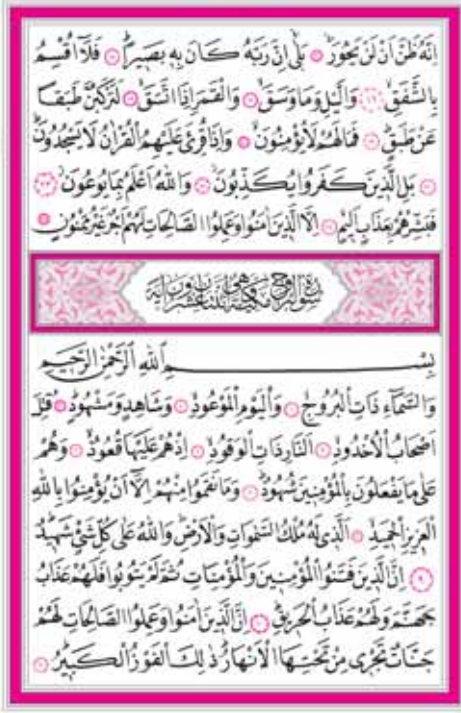 اِنَّهُ ظَنَّ اَنْ لَنْ يَحُورَ بَلٰى اِنَّ رَبَّهُ كَانَ بِهِ بَصٖيرًا فَلَا اُقْسِمُ
بِالشَّفَقِ ﴿١٦﴾ وَالَّيْلِ وَمَا وَسَقَ وَالْقَمَرِ اِذَا اتَّسَقَ لَتَرْكَبُنَّ طَبَقًا
عَنْ طَبَقٍ فَمَا لَهُمْ لَا يُؤْمِنُونَ وَاِذَا قُرِئَ عَلَيْهِمُ الْقُرْاٰنُ لَا يَسْجُدُونَ
بَلِ الَّذٖينَ كَفَرُوا يُكَذِّبُونَ وَاللّٰهُ اَعْلَمُ بِمَا يُوعُونَ ﴿٢٣﴾
فَبَشِّرْهُمْ بِعَذَابٍ اَلٖيمٍ اِلَّا الَّذٖينَ اٰمَنُوا وَعَمِلُوا الصَّالِحَاتِ لَهُمْ اَجْرٌ غَيْرُ مَمْنُونٍ
سُورَةُ الْبُرُوجِ مَكِّيَّةٌ وَهِيَ اثْنَتَانِ وَعِشْرُونَ اٰيَةً
بِسْمِ اللّٰهِ الرَّحْمٰنِ الرَّحٖيمِ
وَالسَّمَاءِ ذَاتِ الْبُرُوجِ وَالْيَوْمِ الْمَوْعُودِ وَشَاهِدٍ وَمَشْهُودٍ قُتِلَ
اَصْحَابُ الْاُخْدُودِ اَلنَّارِ ذَاتِ الْوَقُودِ اِذْ هُمْ عَلَيْهَا قُعُودٌ وَهُمْ
عَلٰى مَا يَفْعَلُونَ بِالْمُؤْمِنٖينَ شُهُودٌ وَمَا نَقَمُوا مِنْهُمْ اِلَّا اَنْ يُؤْمِنُوا بِاللّٰهِ
الْعَزٖيزِ الْحَمٖيدِ اَلَّذٖى لَهُ مُلْكُ السَّمٰوَاتِ وَالْاَرْضِ وَاللّٰهُ عَلٰى كُلِّ شَىْءٍ شَهٖيدٌ
﴿٩﴾ اِنَّ الَّذٖينَ فَتَنُوا الْمُؤْمِنٖينَ وَالْمُؤْمِنَاتِ ثُمَّ لَمْ يَتُوبُوا فَلَهُمْ عَذَابُ
جَهَنَّمَ وَلَهُمْ عَذَابُ الْحَرٖيقِ اِنَّ الَّذٖينَ اٰمَنُوا وَعَمِلُوا الصَّالِحَاتِ لَهُمْ
جَنَّاتٌ تَجْرٖى مِنْ تَحْتِهَا الْاَنْهَارُ ذٰلِكَ الْفَوْزُ الْكَبٖيرُ